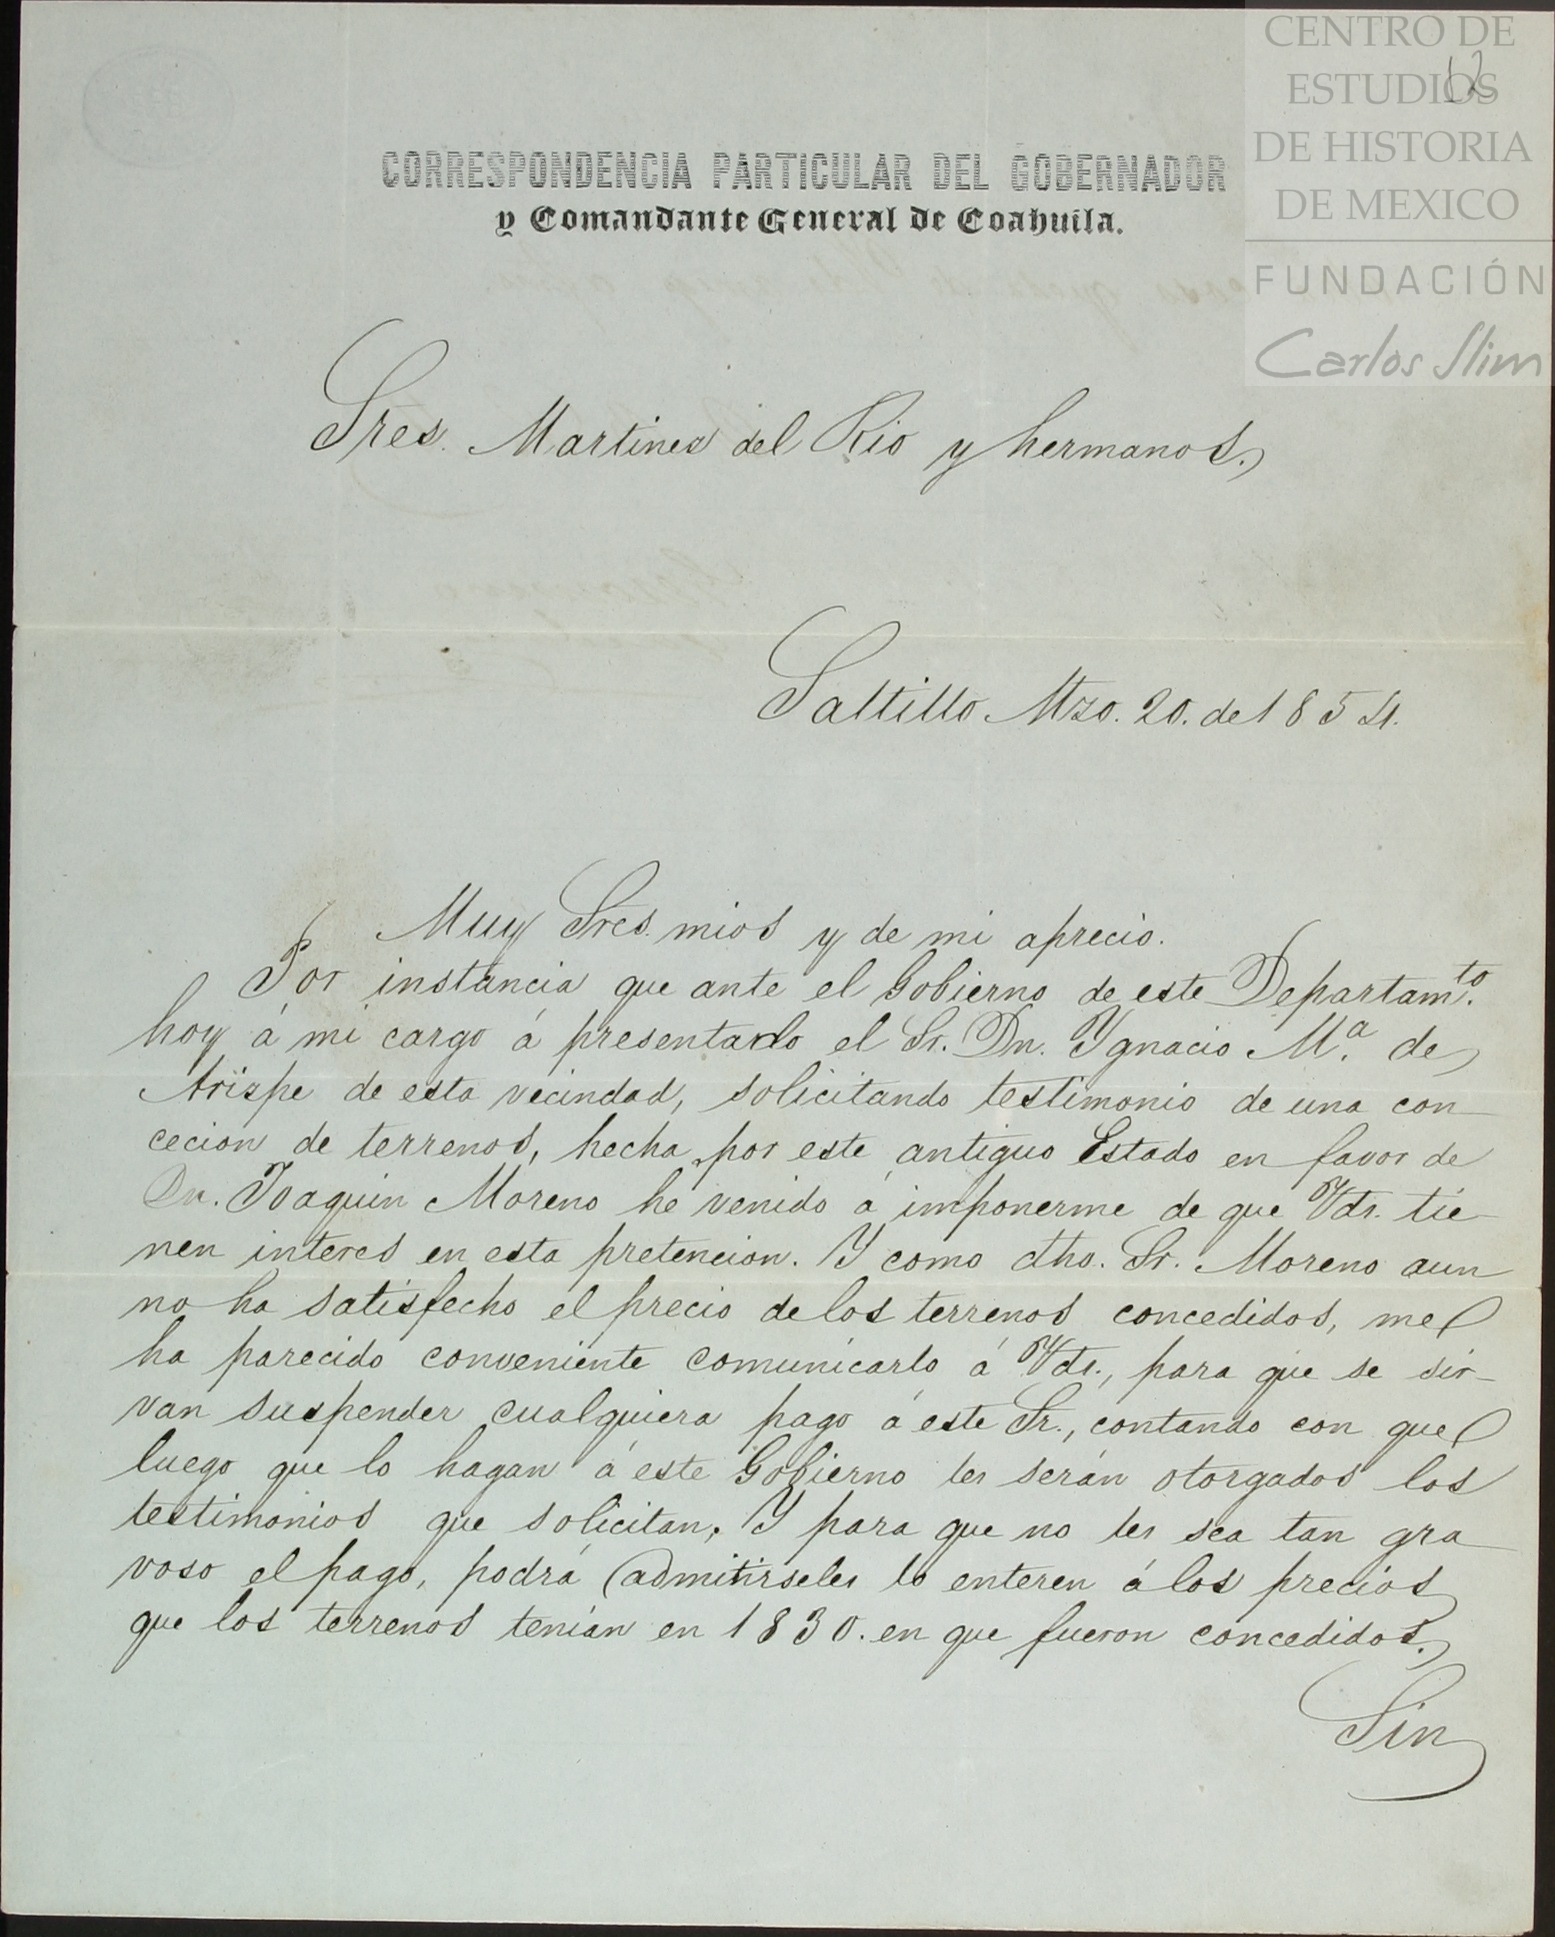 CENTRO DE
ESTUDIOS
DE HISTORIA
DE MEXICO
FUNDACIÓN
Carlos Slim
12
CORRESPONDENCIA PARTICULAR DEL GOBERNADOR
y Comandante General de Coahuila.
Sres. Martines del Rio y hermanos.
Saltillo Mzo. 20. de 1854.
Muy Sres. mios y de mi aprecio.
Por instancia que ante el Gobierno de este Departamto.
hoy á mi cargo á presentado el Sr. Dn. Ygnacio Ma. de
Arispe de esta vecindad, solicitando testimonio de una con
cecion de terrenos, hecha por este antiguo Estado en favor de
Dn. Joaquin Moreno he venido á imponerme de que Vds. tie
nen interes en esta pretencion. Y como dho. Sr. Moreno aun
no ha satisfecho el precio de los terrenos concedidos, me
ha parecido conveniente comunicarlo á Vds., para que se sir-
van suspender cualquiera pago á este Sr., contando con que
luego que lo hagan á este Gobierno les serán otorgados los
testimonios que solicitan. Y para que no les sea tan gra
voso el pago, podrá admitirseles lo enteren á los precios
que los terrenos tenian en 1830. en que fueron concedidos.
Sin